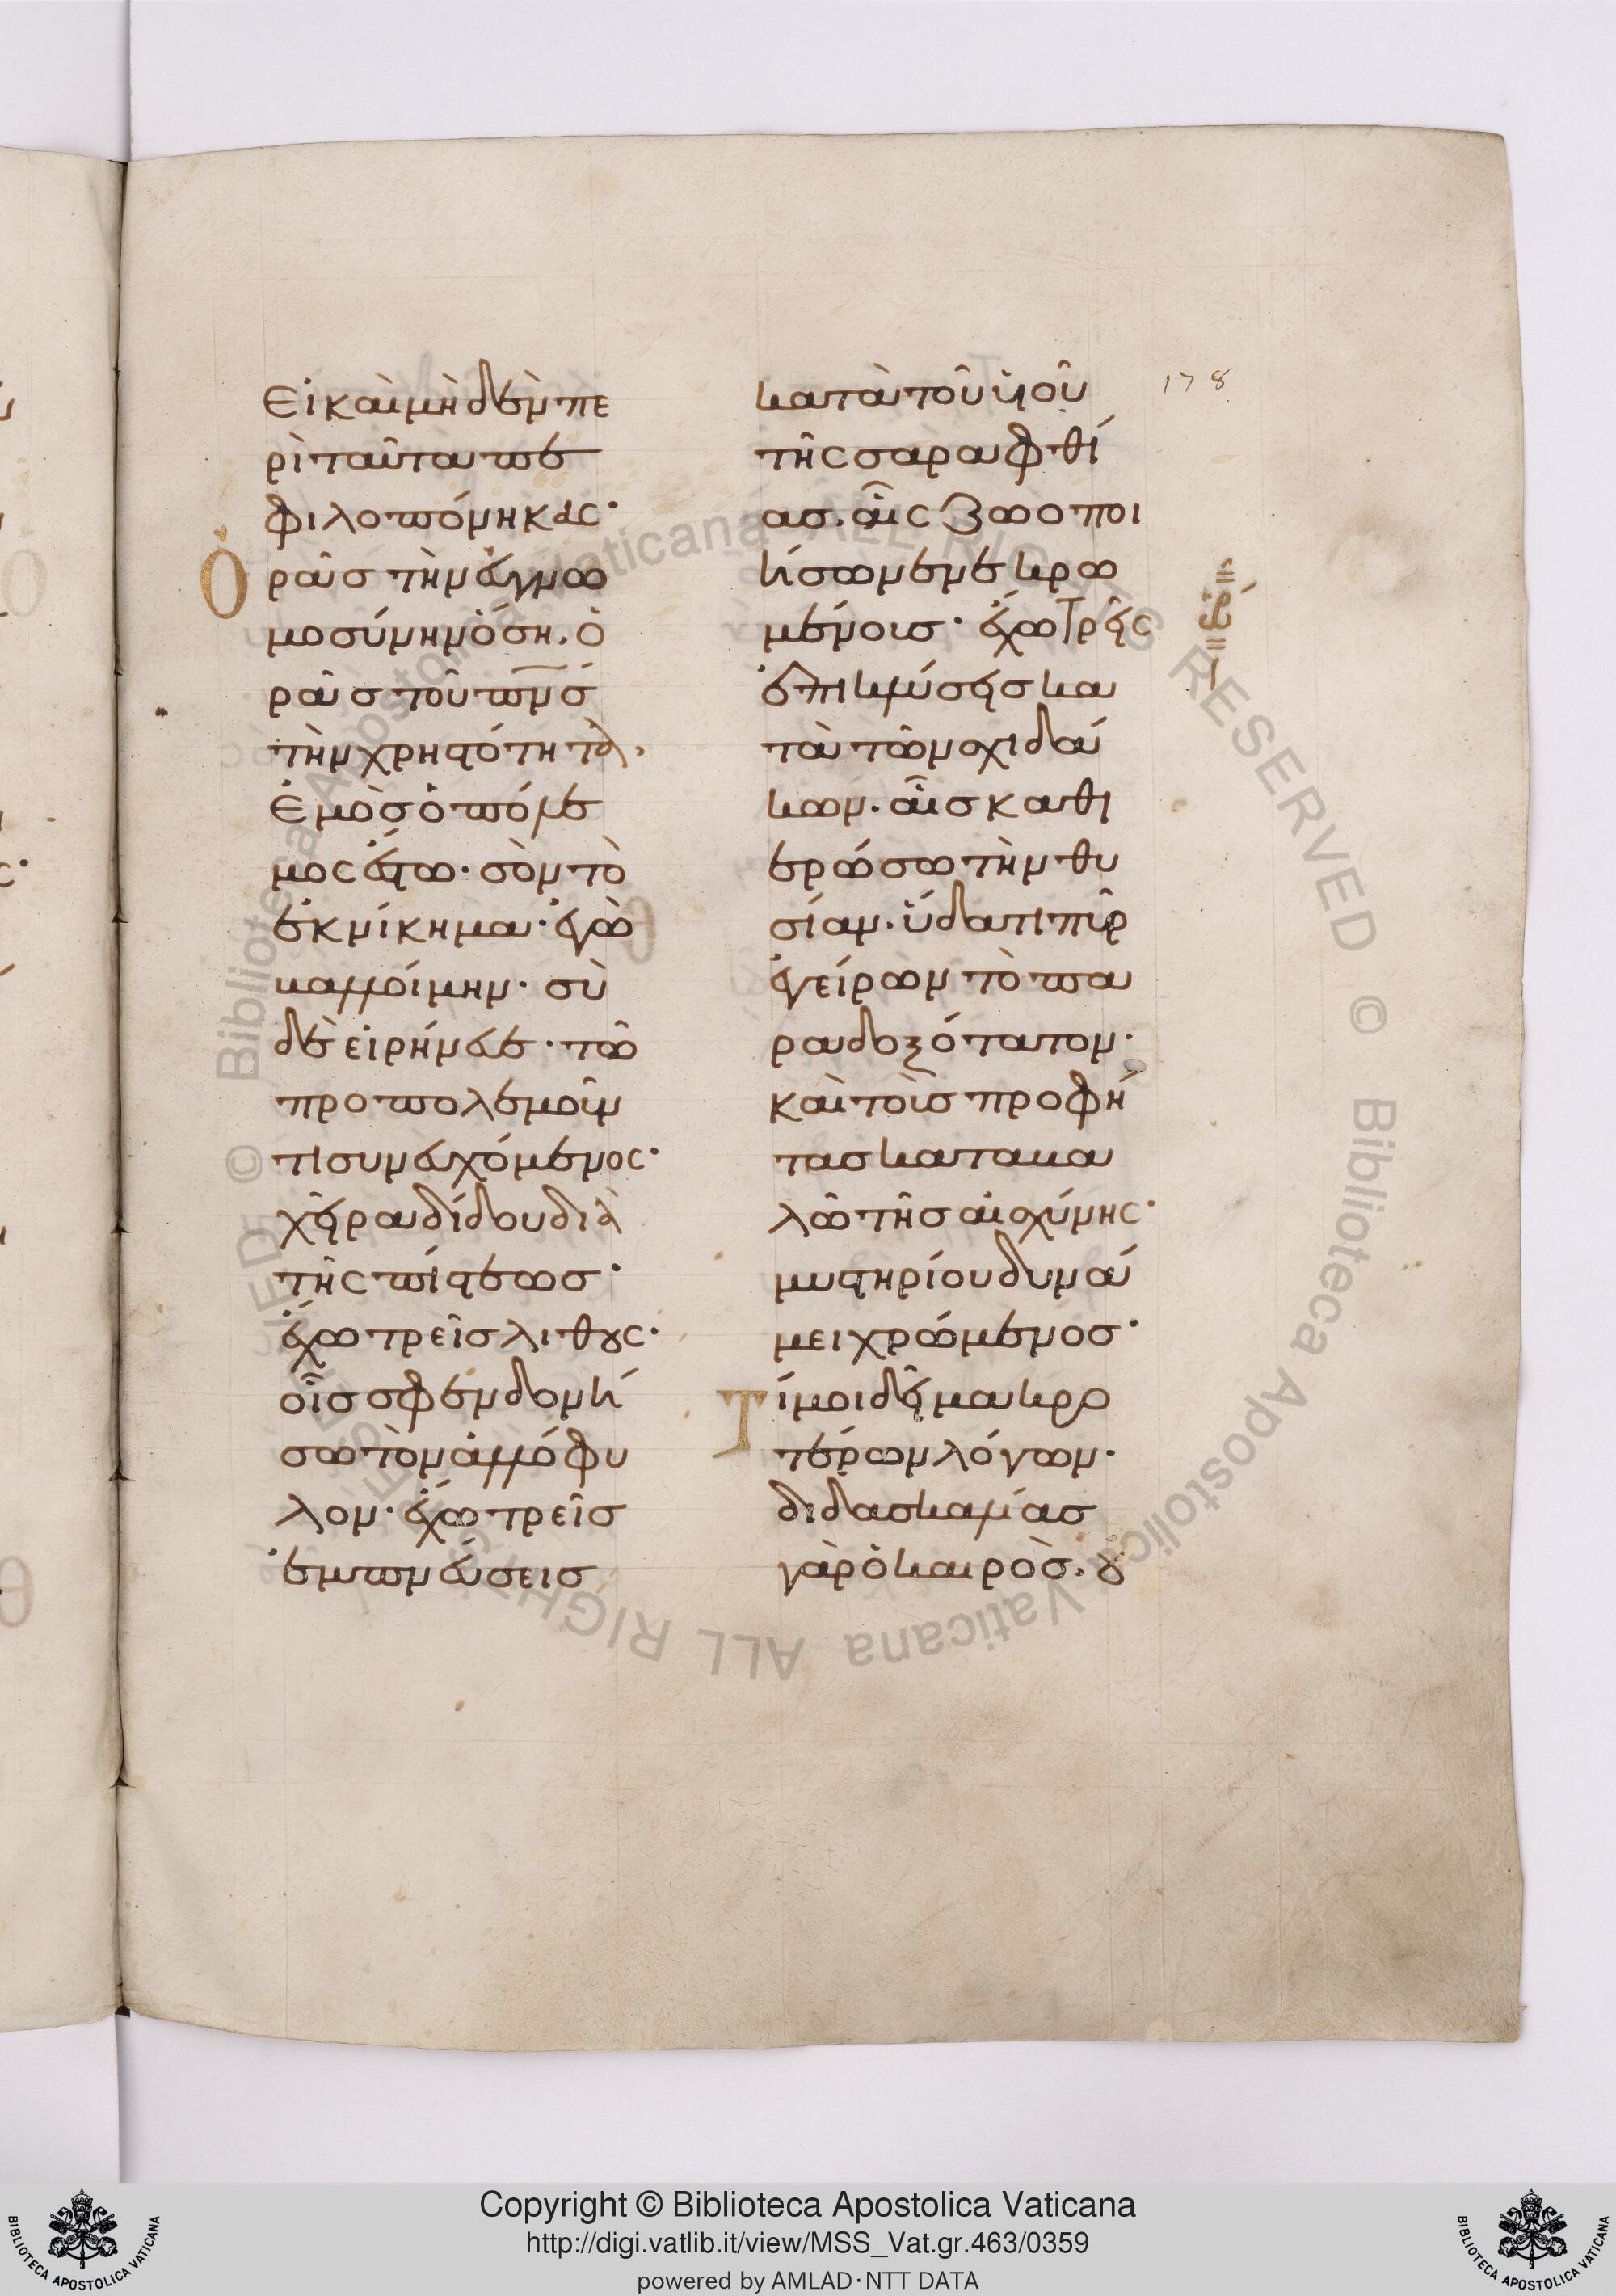 Εἰ καὶ μὴ δὲν πε
ρὶ ταῦτα πε
φιλοπόνηκας·
Ὁ
ρᾶισ τὴν εὐγνω
μοσύνην ὅση. ὁ
ρᾶισ τοῦ πν̅σ
τὴν χρηστότητα.
Ἐμὸσ ὁ πόλε
μος ἔστω· σὸν τὸ
ἐκνίκημα· ἐγὼ
βαλλοίμην· σὺ
δὲ εἰρήνευε· τῶ
προπολεμοῦν
τι συνευχόμενος·
χεῖρα δίδου διὰ
τῆς πίστεωσ·
ἔχω τρεῖσ λίθους·
οἷσ σφενδονή
σω τὸν ἀλλόφυ
λον· ἔχω τρεῖσ
ἐμπνεύσεισ
κατὰ τοῦ υἱοῦ
τῆς σαραφθί
ασ. αἷς ζωοποι
ήσω νενεκρω
μένουσ· ἔχω τρεῖς
ἐπικλύσεισ κα
τὰ τῶν σχιδά
κων. αἷσ καθι
ερώσω τὴν θυ
σίαν. ὕδατι πῦρ
ἐγείρων τὸ πα
ραδοξότατον·
καὶ τοὺσ προφή
τασ καταβα
λῶ τῆσ αἰσχύνης·
μυστηρίου δυνά
μει χρώμενοσ·
Τ
ί μοι δεῖ μακρο
τέρων λόγων·
διδασκαλίασ
γὰρ ὁ καιρὸσ. οὐ
178
Copyright © Biblioteca Apostolica Vaticana
http://digi.vatlib.it/view/MSS_Vat.gr.463/0359
powered by AMLAD·NTT DATA